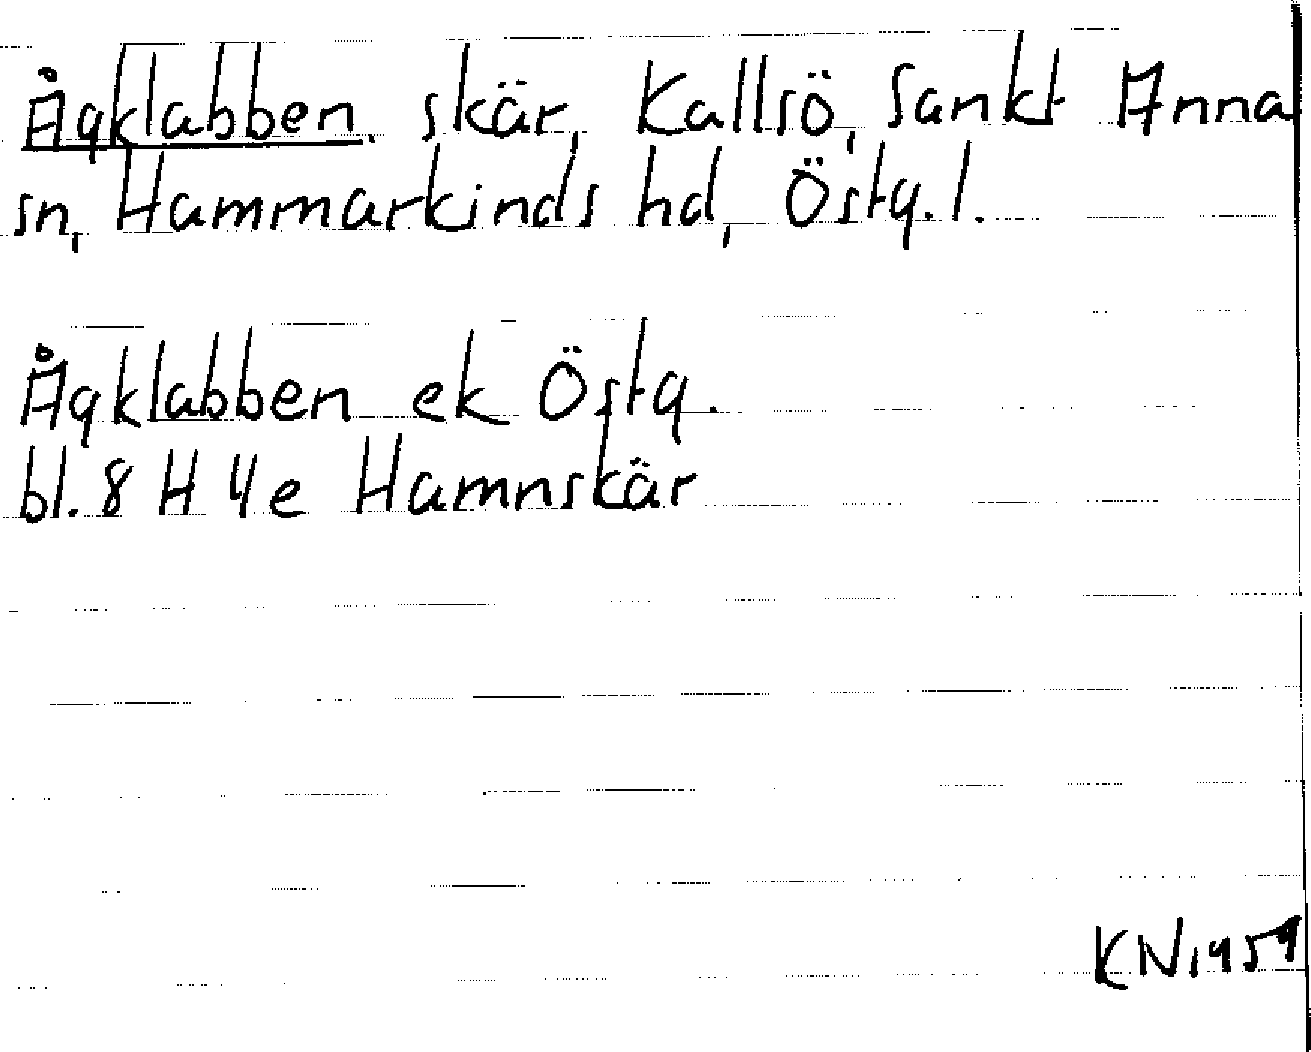 Ågklabben, skär, Kallsö, Sankt Anna
sn, Hammarkinds hd, Östg. l.
Ågklabben ek Östg.
bl. 8 H 4e Hamnskär
KN 1959